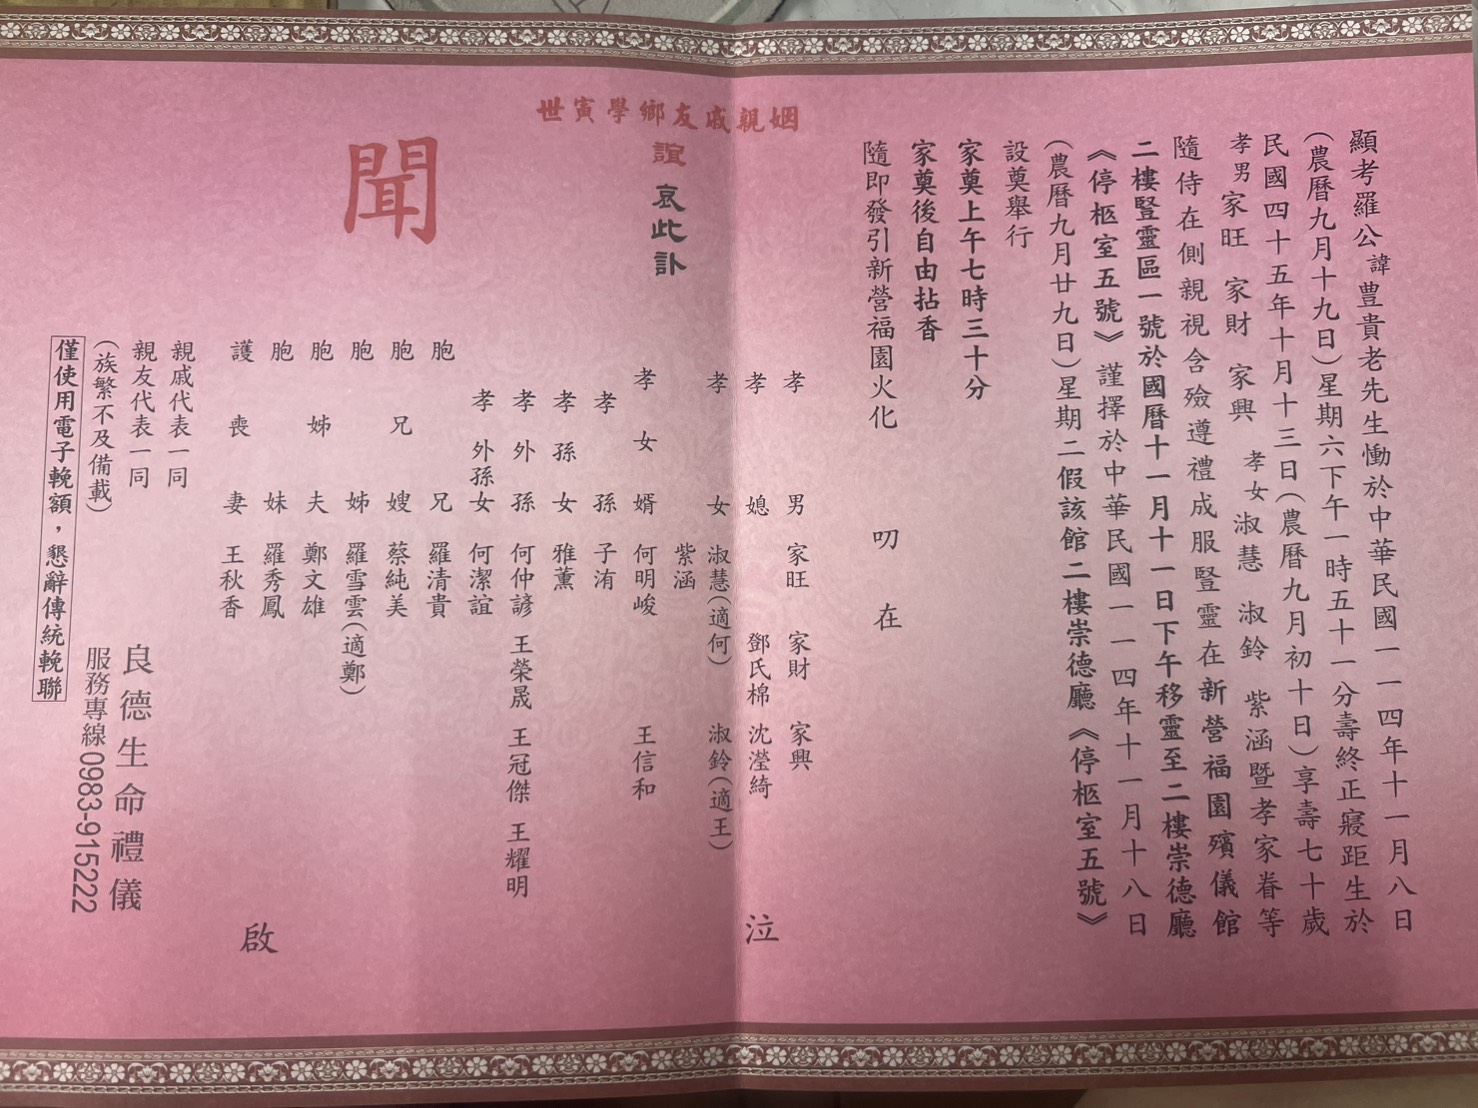 顯考羅公諱豊貴老先生慟於中華民國一一四年十一月八日
(農曆九月十九日)星期六下午一時五十一分壽終正寢距生於
民國四十五年十月十三日(農曆九月初十日)享壽七十歲
孝男家旺 家財 家興 孝女淑慧 淑鈴 紫涵暨孝家眷等
隨侍在側親視含殮遵禮成服豎靈在新營福園殯儀館
二樓豎靈區一號於國曆十一月十一日下午移靈至二樓崇德廳
《停柩室五號》謹擇於中華民國一一四年十一月十八日
(農曆九月廿九日)星期二假該館二樓崇德廳《停柩室五號》
設奠舉行
家奠上午七時三十分
家奠後自由拈香
隨即發引新營福園火化
叨在
姻親戚友鄉學寅世
誼 哀此訃
聞
孝男 家旺 家財 家興
孝媳 鄧氏棉 沈瀅綺
孝女 淑慧(適何) 淑鈴(適王)
紫涵
孝女婿 何明峻 王信和
孝孫 子洧
孝孫女 雅薰
孝外孫 何仲諺 王榮晟 王冠傑 王耀明
孝外孫女 何潔誼
胞兄 羅清貴
胞兄嫂 蔡純美
胞姊 羅雪雲(適鄭)
胞姊夫 鄭文雄
胞妹 羅秀鳳
護喪妻 王秋香
泣
啟
親戚代表一同
親友代表一同
(族繁不及備載)
僅使用電子輓額,懇辭傳統輓聯
良德生命禮儀
服務專線0983-915222